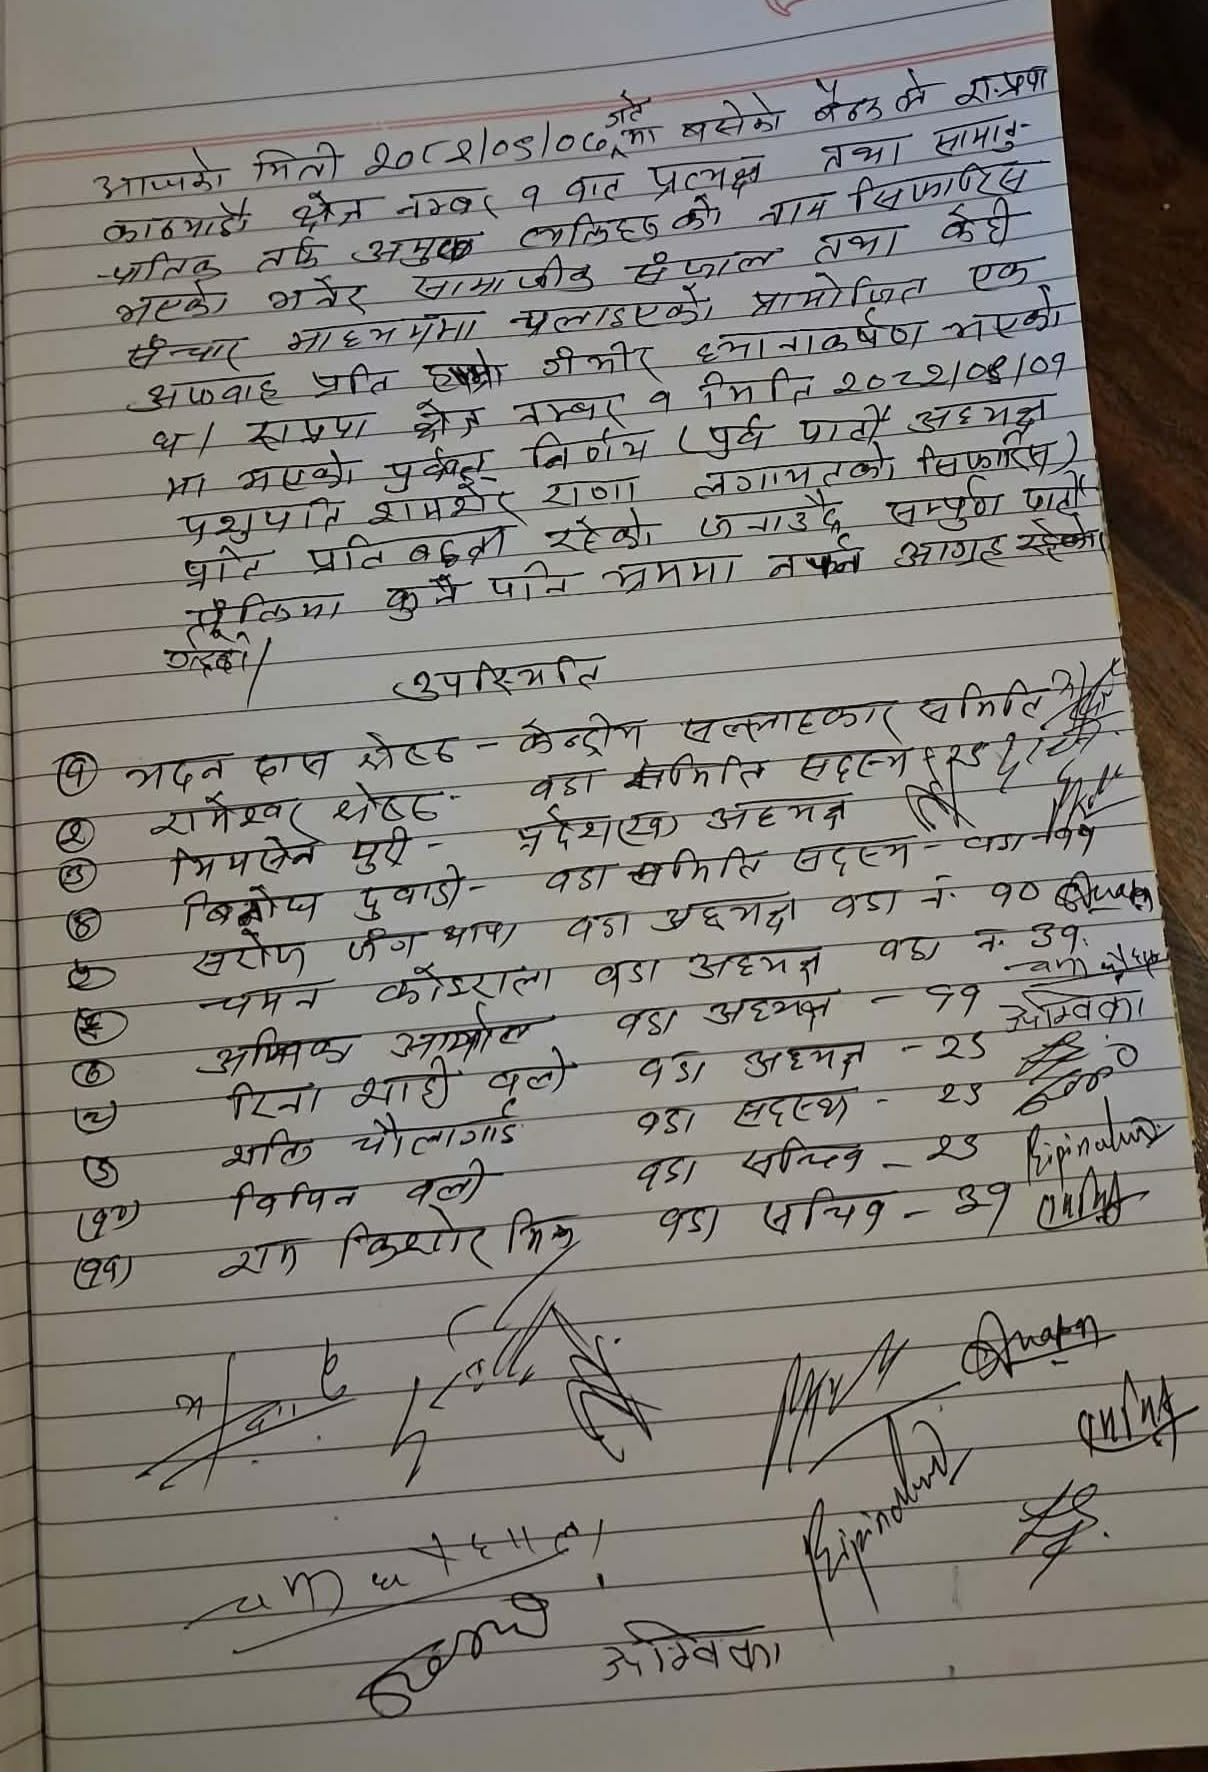 आजको मिती २०८२/०८/०८ गते मा बसेको बैठक ले रा.प्रपा
काठमाडौं क्षेत्र नम्बर १ बाट प्रत्यक्ष तथा सामानु-
पातिक तर्फ अमुक व्यक्तिहरुको नाम सिफारिस
भएको भनेर सामाजीक संजाल तथा केही
संन्चार माध्यममा चलाइएको प्रायोजित एक
अफवाह प्रति हाम्रो गंभीर ध्यानाकर्षण भएको
छ। राप्रपा क्षेत्र नम्बर १ मिति २०८२/०८/०१
मा भएको पुर्ववत निर्णय (पुर्व पार्टी अध्यक्ष
पशुपति शमशेर राणा लगायतको सिफारिस)
प्रति प्रतिबद्ध रहेको जनाउदै सम्पुर्ण पार्टी
पंक्तिमा कुनै पनि भ्रममा नपर्न आग्रह रहेको
गर्दछौ।
उपस्थिति
(१) मदन दास श्रेष्ठ - केन्द्रीय सल्लाहकार समिति
(२) रामेश्वर श्रेष्ठ - वडा समिति सदस्य
(३) भिमसेन पुरी - प्रदेश अध्यक्ष
(४) दुवाडी - वडा समिति सदस्य - वडा ११
(५) सरोज जंग थापा वडा अध्यक्ष वडा नं. १०
(६) चमन कोइराला वडा अध्यक्ष वडा न. ३१
(७) अम्बिका वडा अध्यक्ष - ११ अम्बिका
(८) रिना शाही वली वडा अध्यक्ष - २९
(९) शक्ति चौलागाई वडा सदस्य - २९
(१०) विपिन वली वडा सचिव - २९ Bipinalwd
(११) राम किशोर वडा सचिव - ३१
अम्बिका